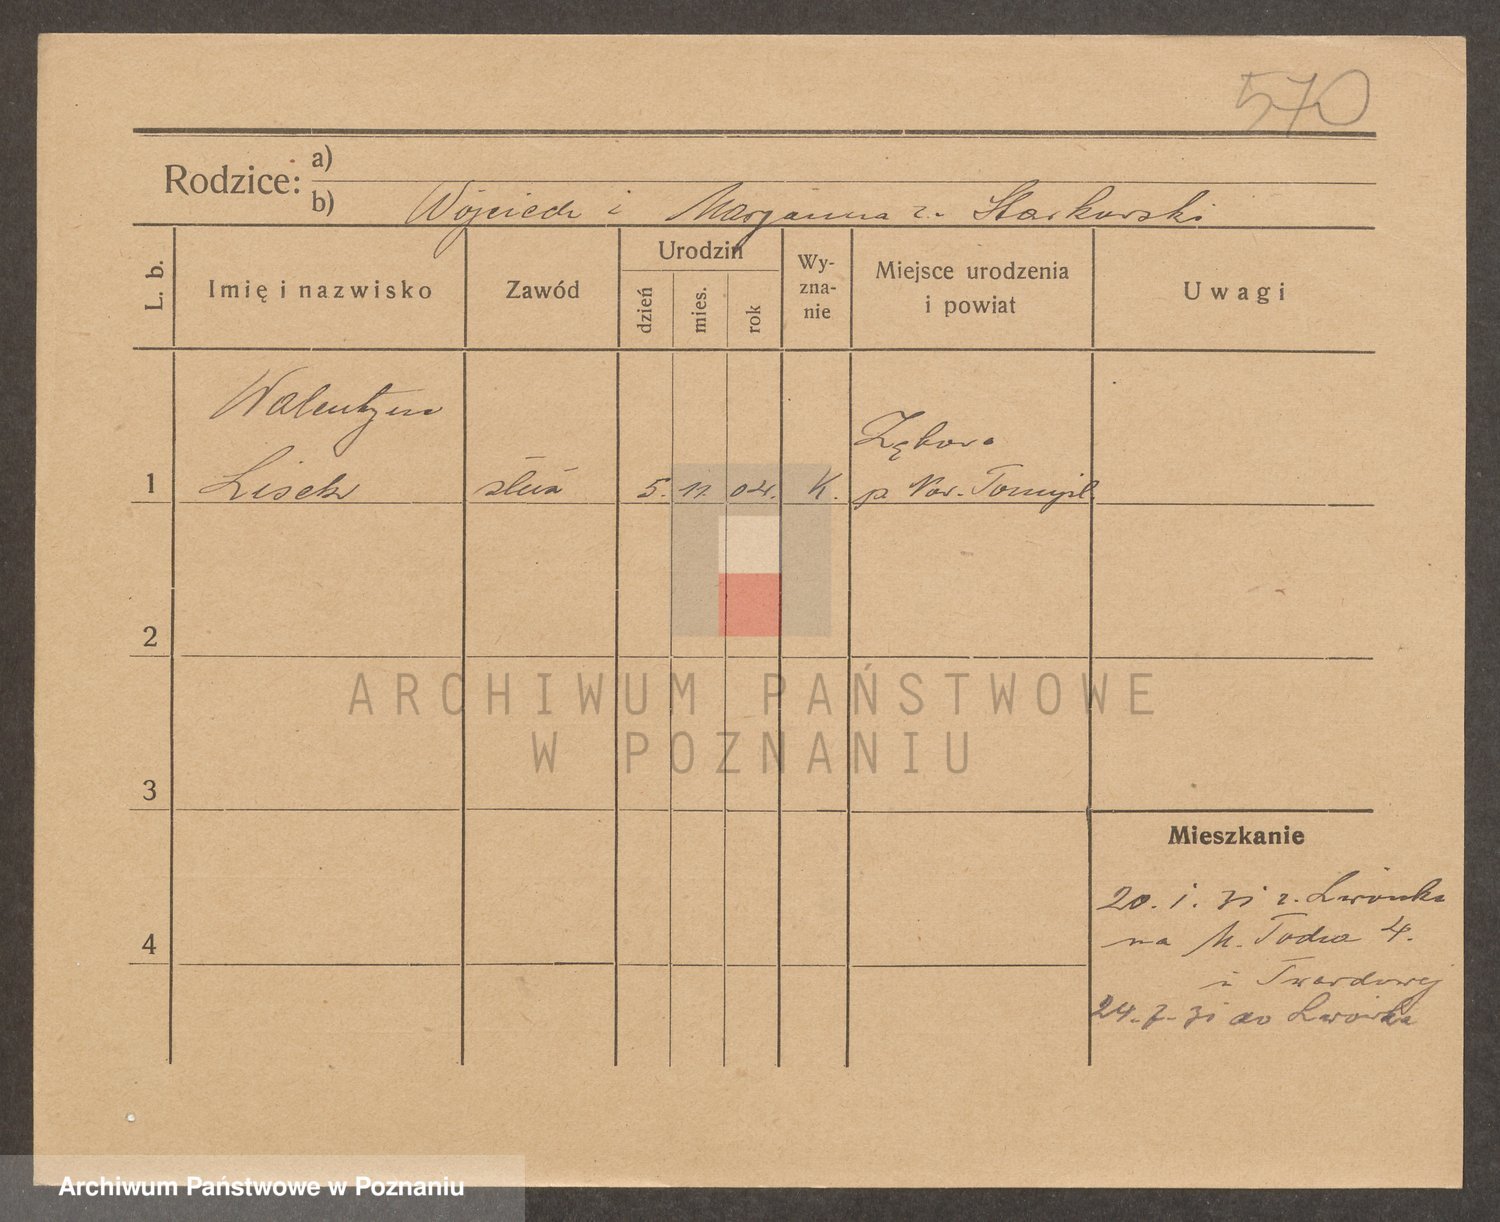 570
Rodzice: a)
b) Wojciech i Maryanna z. Starkowski
L. b.
Imię i nazwisko
Zawód
Urodzin
dzień
mies.
rok
Wy-
zna-
nie
Miejsce urodzenia
i powiat
Uwagi
Walentyn
Lisek
1
służ
5. 11. 04. K.
Zębowo
p. Now. Tomyśl.
2
3
4
Mieszkanie
20. 1. 31 z. Lwówka
na M. Focha 4.
u Twardowej
24. 7. 31 do Lwówka
ARCHIWUM PAŃSTWOWE
W POZNANIU
Archiwum Państwowe w Poznaniu